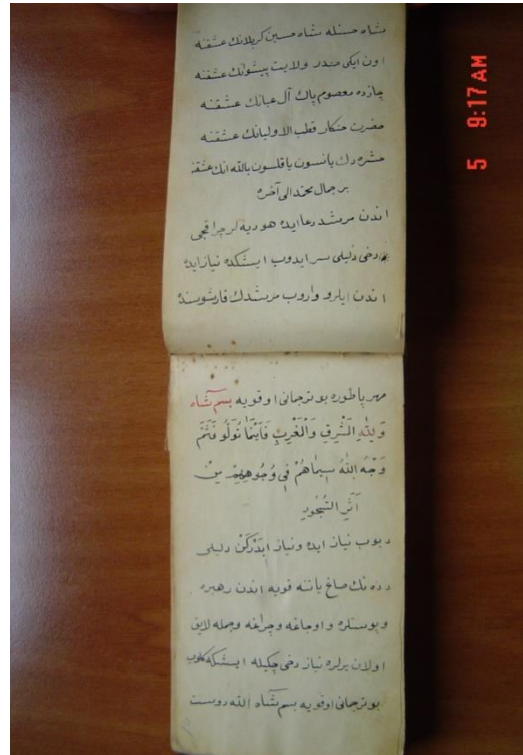 شاه حسنله شاه حسین کربلانك عشقنه
اون ایکی صدر ولایت پیشوانك عشقنه
چارده معصوم پاك آل عبانك عشقنه
حضرت خنکار قطب الاولیانك عشقنه
حشره دك یانسون یاقلسون بالله انك عشقنه
بر جمال محمد الی آخره
اندن مرشد دعا ایده هو دیه لر چراقجی
دخی دلیلی سر ایدوب ایشکده نیاز ایده
اندن ایلرو واروب مرشدك قارشوسنده
مهر پا طوره بو ترجمانی اوقویه بسم شاه
وَلِلّٰهِ الْمَشْرِقِ وَالْمَغْرِبِ فَاَیْنَمَا تُوَلُّو فَثَمَّ
وَجْهُ اللّٰهُ سِیمَاهُمْ فِی وُجُوهِهِمْ مِنْ
اَثَرِ السُّجُودِ
دیوب نیاز ایده و نیاز ایدرکن دلیلی
دده نك صاغ یاننه قویه اندن رهبره
و پوستلره و اوجاغه و چراغه و جمله لایق
اولان یرلره نیاز دخی چکیله ایشکه کلوب
بو ترجمانی اوقویه بسم شاه الله دوست
5 9:17AM